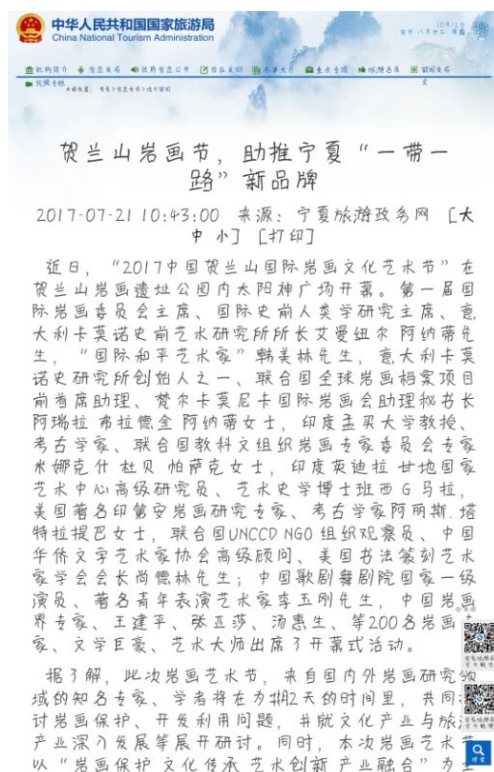 中华人民共和国国家旅游局
China National Tourism Administration
贺兰山岩画节，助推宁夏“一带一
路”新品牌
2017-07-21 10:43:00 来源：宁夏旅游政务网 [大
中 小] [打印]
近日，“2017中国贺兰山国际岩画文化艺术节”在
贺兰山岩画遗址公园内太阳神广场开幕。第一届国
际岩画委员会主席、国际史前人类学研究主席、意
大利卡莫诺史前艺术研究所所长艾曼纽尔 阿纳蒂先
生，“国际和平艺术家”韩美林先生，意大利卡莫
诺史研究所创始人之一、联合国全球岩画档案项目
前首席助理、梵尔卡莫尼卡国际岩画会助理秘书长
阿瑞拉 布拉德金 阿纳蒂女士，印度孟买大学教授、
考古学家、联合国教科文组织岩画专家委员会专家
米娜克什 杜贝 帕萨克女士，印度英迪拉 甘地国家
艺术中心高级研究员、艺术史学博士班西 G 马拉，
美国著名印第安岩画研究专家、考古学家阿丽斯.塔
特拉提巴女士，联合国UNCCD NGO 组织观察员、中国
华侨文字艺术家协会高级顾问、美国书法篆刻艺术
家学会会长尚德林先生；中国歌剧舞剧院国家一级
演员、著名青年表演艺术家李玉刚先生，中国岩画
界专家、王建平、张亚莎、汤惠生、等200名岩画
家、文学巨豪、艺术大师出席了开幕式活动。
据了解，此次岩画艺术节，来自国内外岩画研究领
域的知名专家、学者将在为期2天的时间里，共同
讨岩画保护、开发利用问题，并就文化产业与旅
产业深入发展等展开研讨。同时，本次岩画艺术
以“岩画保护 文化传承 艺术创新 产业融合”为